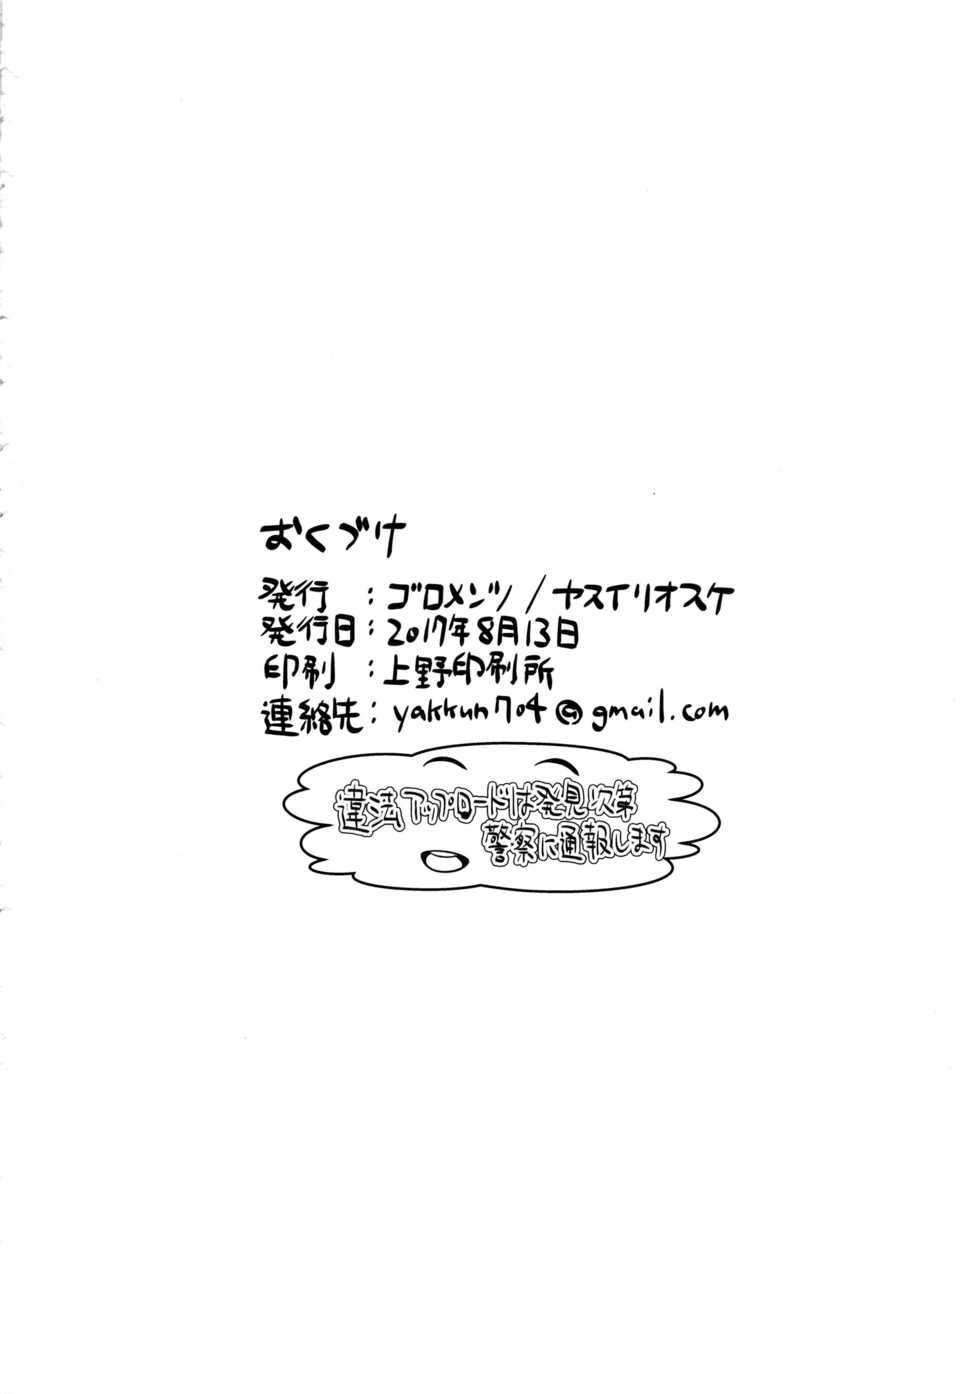 おくづけ
発行　：ゴロメンツ/ヤスイリオスケ
発行日：2017年8月13日
印刷　：上野印刷所
連絡先：yakkun704@gmail.com
違法アップロードは発見次第
警察に通報します